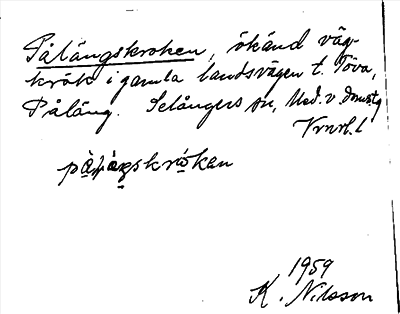 Pålångskroken, ökänd väg-
krök i gamla landsvägen t. Töva,
Pålång. Selångers sn, Med. v. domstg
Vrnrl. l
pålångskróken
1959
K. Nilsson